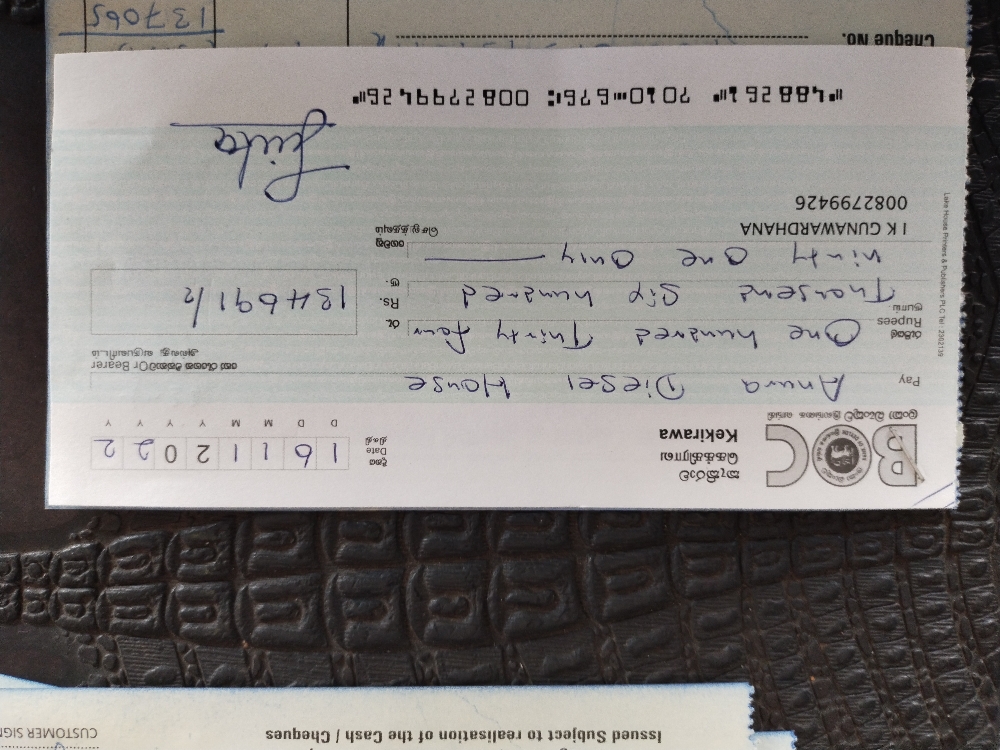 CUSTOMER SIGN
Issued Subject to realisation of the Cash / Cheques
BOC
කැකිරාව
கெக்கிராவ
Kekirawa
දිනය
Date
திகதி
1 6 1 1 2 0 2 2
D D M M Y Y Y Y
Pay Anura Diesel House
Or Bearer
රුපියල්
Rupees
ரூபாய்
One hundred Thirty four
Thousend Six hundred
ninty one only
රු.
Rs.
ரூ.
134691/2
I K GUNAWARDHANA
0082799426
Lake House Printers & Publishers PLC Tel: 2302139
⑈488261⑈ 7010⑉676⑆ 0082799426⑈
Cheque No.
137065